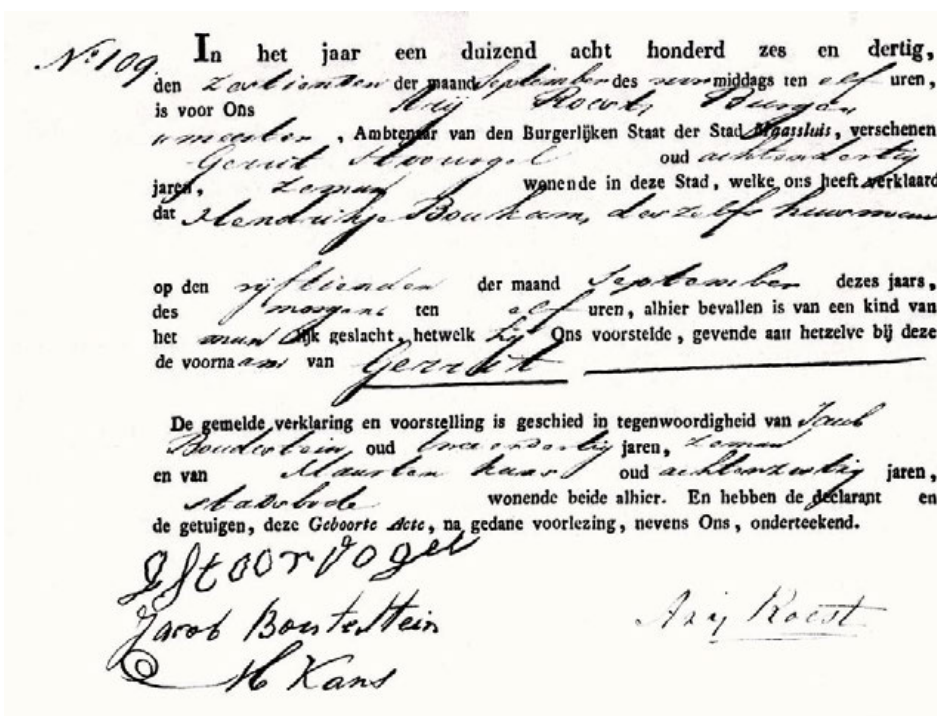 N° 109. In het jaar een duizend acht honderd zes en dertig,
den zestienden der maand September des voormiddags ten elf uren,
is voor Ons Arij Roest, Burge
meester, Ambtenaar van den Burgerlijken Staat der Stad Maassluis, verschenen
Gerrit Stoorvogel oud achtendertig
jaren, Zeeman wonende in deze Stad, welke ons heeft verklaard
dat Hendrikje Boukam, deszelfs huisvrouw
op den vijftienden der maand September dezes jaars,
des morgens ten elf uren, alhier bevallen is van een kind van
het manlijk geslacht, hetwelk hij Ons voorstelde, gevende aan hetzelve bij deze
de voornaam van Gerrit
De gemelde verklaring en voorstelling is geschied in tegenwoordigheid van Jacob
oud twee en dertig jaren, Zeeman
en van Maarten Kans oud achtenzestig jaren,
stadsbode wonende beide alhier. En hebben de declarant en
de getuigen, deze Geboorte Acte, na gedane voorlezing, nevens Ons, onderteekend.
G Stoorvogel
Jacob Boutestein
Arij Roest
M Kans